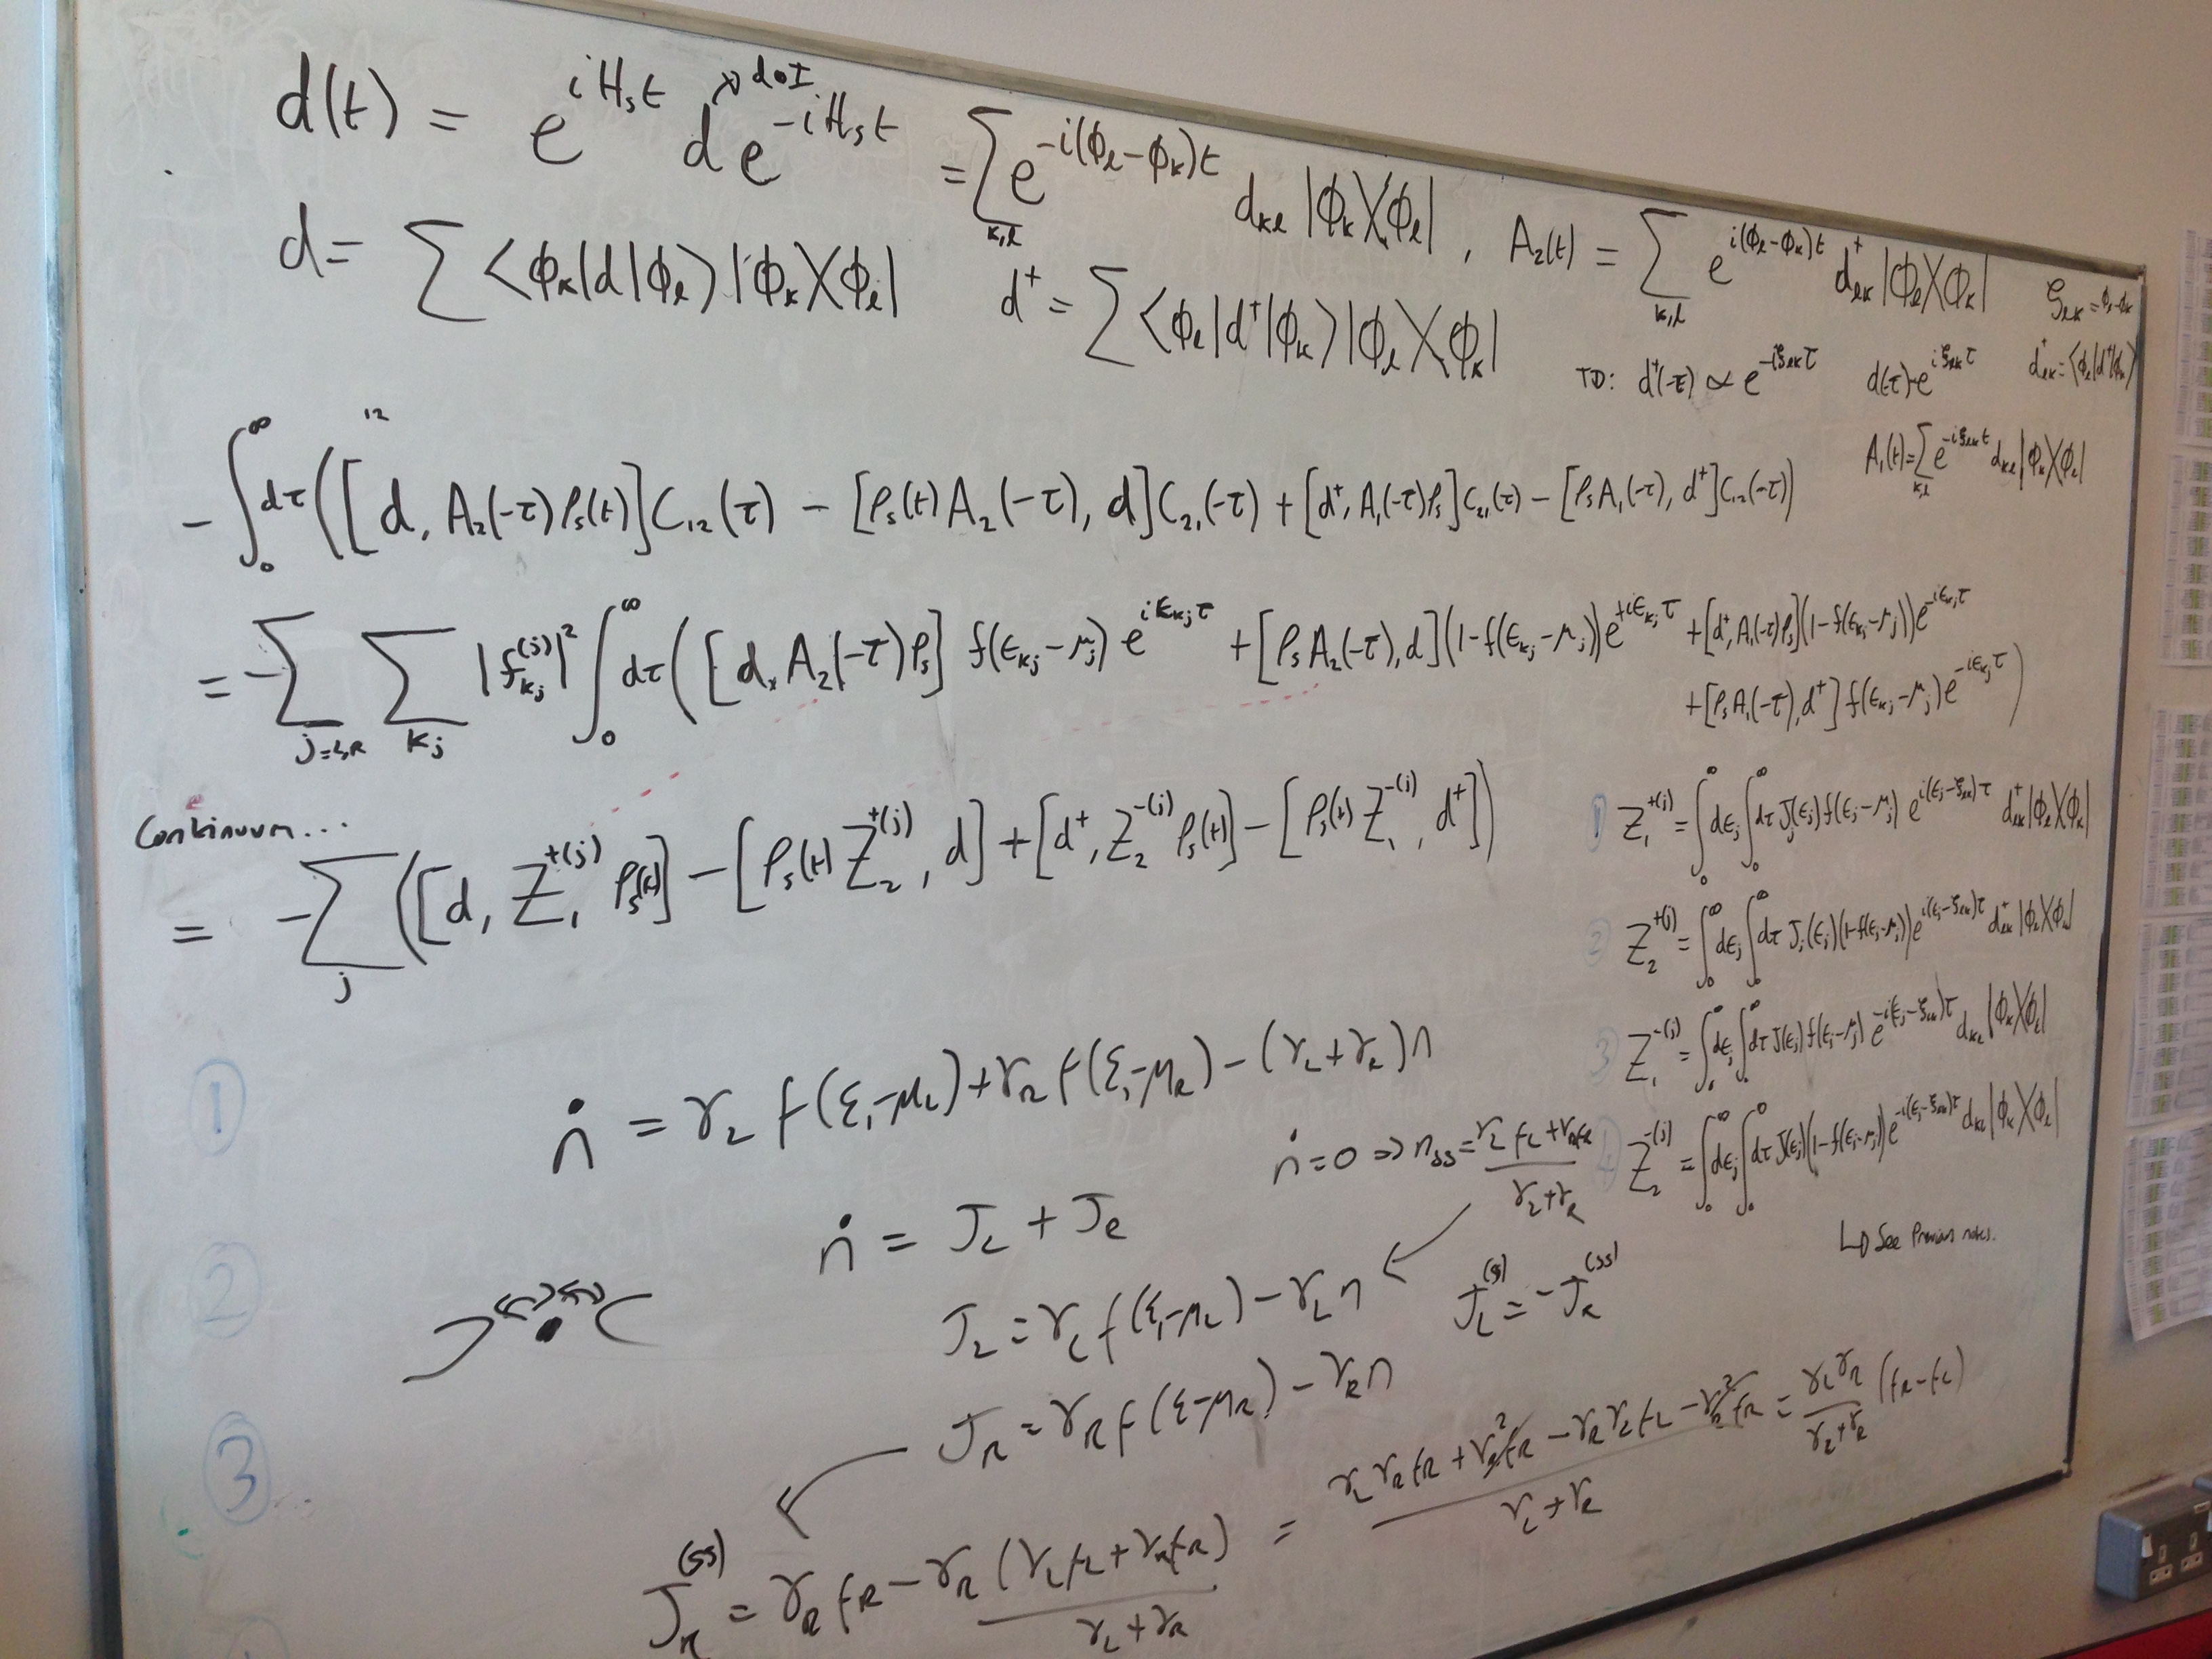 d(t) = e^{iH_s t} d e^{-iH_s t} = ∑_{k,l} e^{-i(ϕ_l-ϕ_k)t} d_{kl} |ϕ_k⟩⟨ϕ_l| , A_2(t) = ∑_{k,l} e^{i(ϕ_l-ϕ_k)t} d†_{lk} |ϕ_l⟩⟨ϕ_k|
d⊗I
d = ∑ ⟨ϕ_k|d|ϕ_l⟩ |ϕ_k⟩⟨ϕ_l| d† = ∑ ⟨ϕ_l|d†|ϕ_k⟩ |ϕ_l⟩⟨ϕ_k|
ξ_{lk} = ϕ_l-ϕ_k
TD: d†(-τ) ∝ e^{-iξ_{lk}τ} d(τ) e^{iξ_{lk}τ} d†_{lk} = ⟨ϕ_l|d†|ϕ_k⟩
A_1(t) = ∑_{k,l} e^{-iξ_{lk}t} d_{kl} |ϕ_k⟩⟨ϕ_l|
12
- ∫_0^∞ dτ ([d, A_2(-τ)ρ_s(t)]C_{12}(τ) - [ρ_s(t)A_2(-τ), d]C_{21}(-τ) + [d†, A_1(-τ)ρ_s]C_{21}(τ) - [ρ_s A_1(-τ), d†]C_{12}(-τ))
= -∑_{j=L,R} ∑_{k_j} |f_{k_j}^{(j)}|² ∫_0^∞ dτ ([d, A_2(-τ)ρ_s] f(ϵ_{k_j}-μ_j) e^{iϵ_{k_j}τ} + [ρ_s A_2(-τ), d](1-f(ϵ_{k_j}-μ_j))e^{+iϵ_{k_j}τ} + [d†, A_1(-τ)ρ_s](1-f(ϵ_{k_j}-μ_j))e^{-iϵ_{k_j}τ}
+ [ρ_s A_1(-τ), d†] f(ϵ_{k_j}-μ_j) e^{-iϵ_{k_j}τ})
Continuum...
= -∑_j ([d, Z_1^{+(j)} ρ_s(t)] - [ρ_s(t) Z_2^{+(j)}, d] + [d†, Z_2^{-(j)} ρ_s(t)] - [ρ_s(t) Z_1^{-(j)}, d†])
① Z_1^{+(j)} = ∫_0^∞ dϵ_j ∫_0^∞ dτ J_j(ϵ_j) f(ϵ_j-μ_j) e^{i(ϵ_j-ξ_{lk})τ} d†_{lk} |ϕ_l⟩⟨ϕ_k|
② Z_2^{+(j)} = ∫_0^∞ dϵ_j ∫_0^∞ dτ J_j(ϵ_j)(1-f(ϵ_j-μ_j)) e^{i(ϵ_j-ξ_{lk})τ} d†_{lk} |ϕ_l⟩⟨ϕ_k|
③ Z_1^{-(j)} = ∫_0^∞ dϵ_j ∫_0^∞ dτ J(ϵ_j) f(ϵ_j-μ_j) e^{-i(ϵ_j-ξ_{lk})τ} d_{kl} |ϕ_k⟩⟨ϕ_l|
④ Z_2^{-(j)} = ∫_0^∞ dϵ_j ∫_0^∞ dτ J(ϵ_j)(1-f(ϵ_j-μ_j)) e^{-i(ϵ_j-ξ_{lk})τ} d_{kl} |ϕ_k⟩⟨ϕ_l|
↳ See Previous notes.
①
ṅ = γ_L f(ε_1-μ_L) + γ_R f(ε_1-μ_R) - (γ_L+γ_R)n
ṅ=0 => n_{ss} = (γ_L f_L + γ_R f_R)/(γ_L+γ_R)
②
ṅ = J_L + J_R
J_L = γ_L f(ε_1-μ_L) - γ_L n
J_L^{(ss)} = -J_R^{(ss)}
③
J_R = γ_R f(ε-μ_R) - γ_R n
J_R^{(ss)} = γ_R f_R - γ_R (γ_L f_L + γ_R f_R)/(γ_L+γ_R) = (γ_L γ_R f_R + γ_R² f_R - γ_R γ_L f_L - γ_R² f_R)/(γ_L+γ_R) = γ_L γ_R/(γ_L+γ_R) (f_R - f_L)